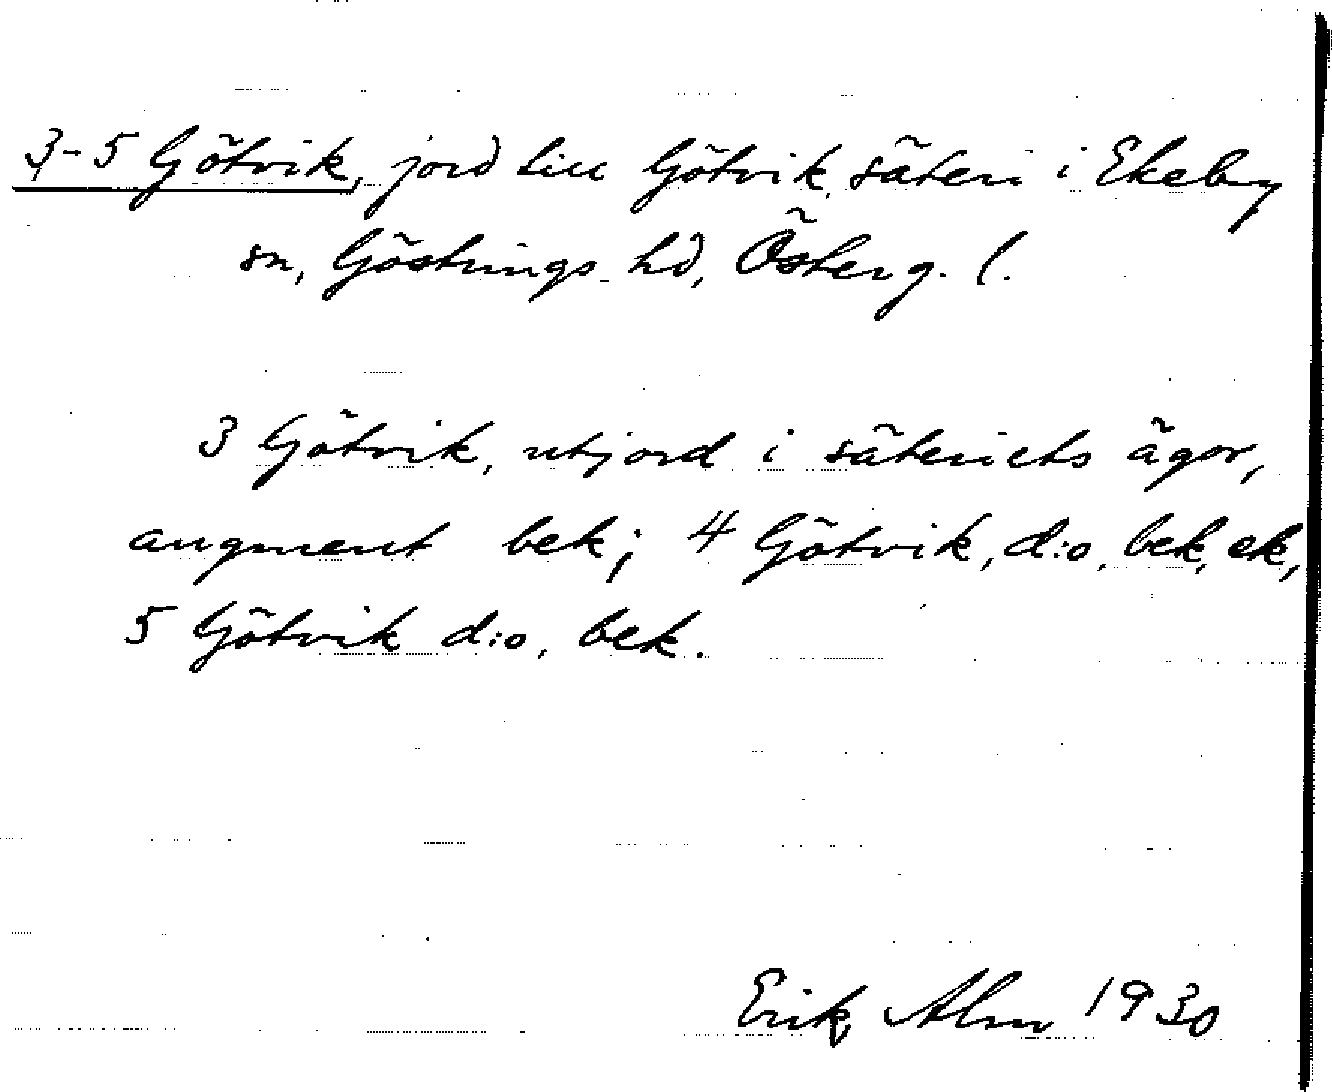 3-5 Götvik, jord till Götvik säteri i Ekeby
sn, Göstrings hd, Österg. l.
3 Götvik, utjord i säteriets ägor,
augment bek; 4 Götvik, d:o, bek, ek,
5 Götvik d:o, bek.
Erik Alm 1930